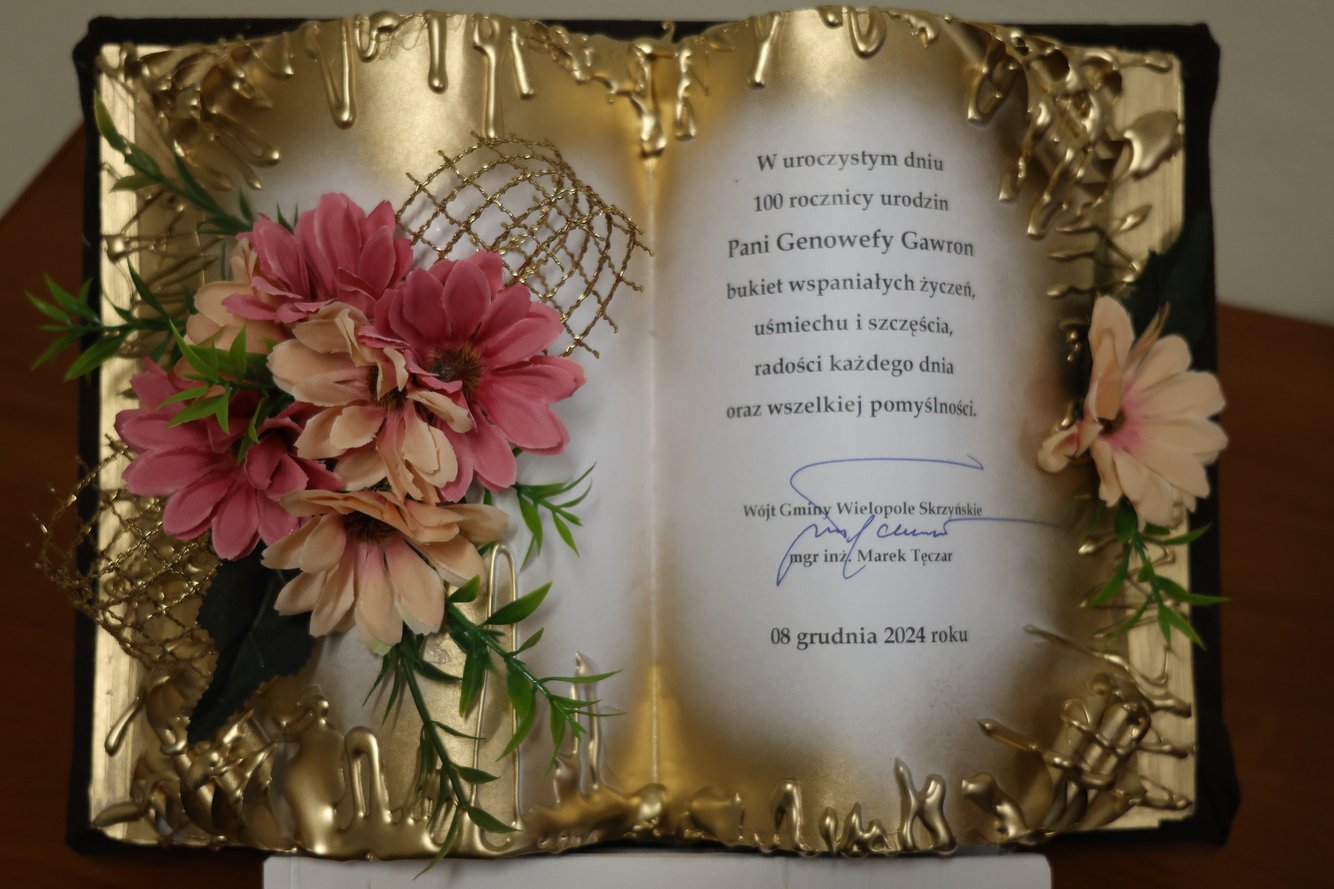 W uroczystym dniu
100 rocznicy urodzin
Pani Genowefy Gawron
bukiet wspaniałych życzeń,
uśmiechu i szczęścia,
radości każdego dnia
oraz wszelkiej pomyślności.
Wójt Gminy Wielopole Skrzyńskie
mgr inż. Marek Tęczar
08 grudnia 2024 roku